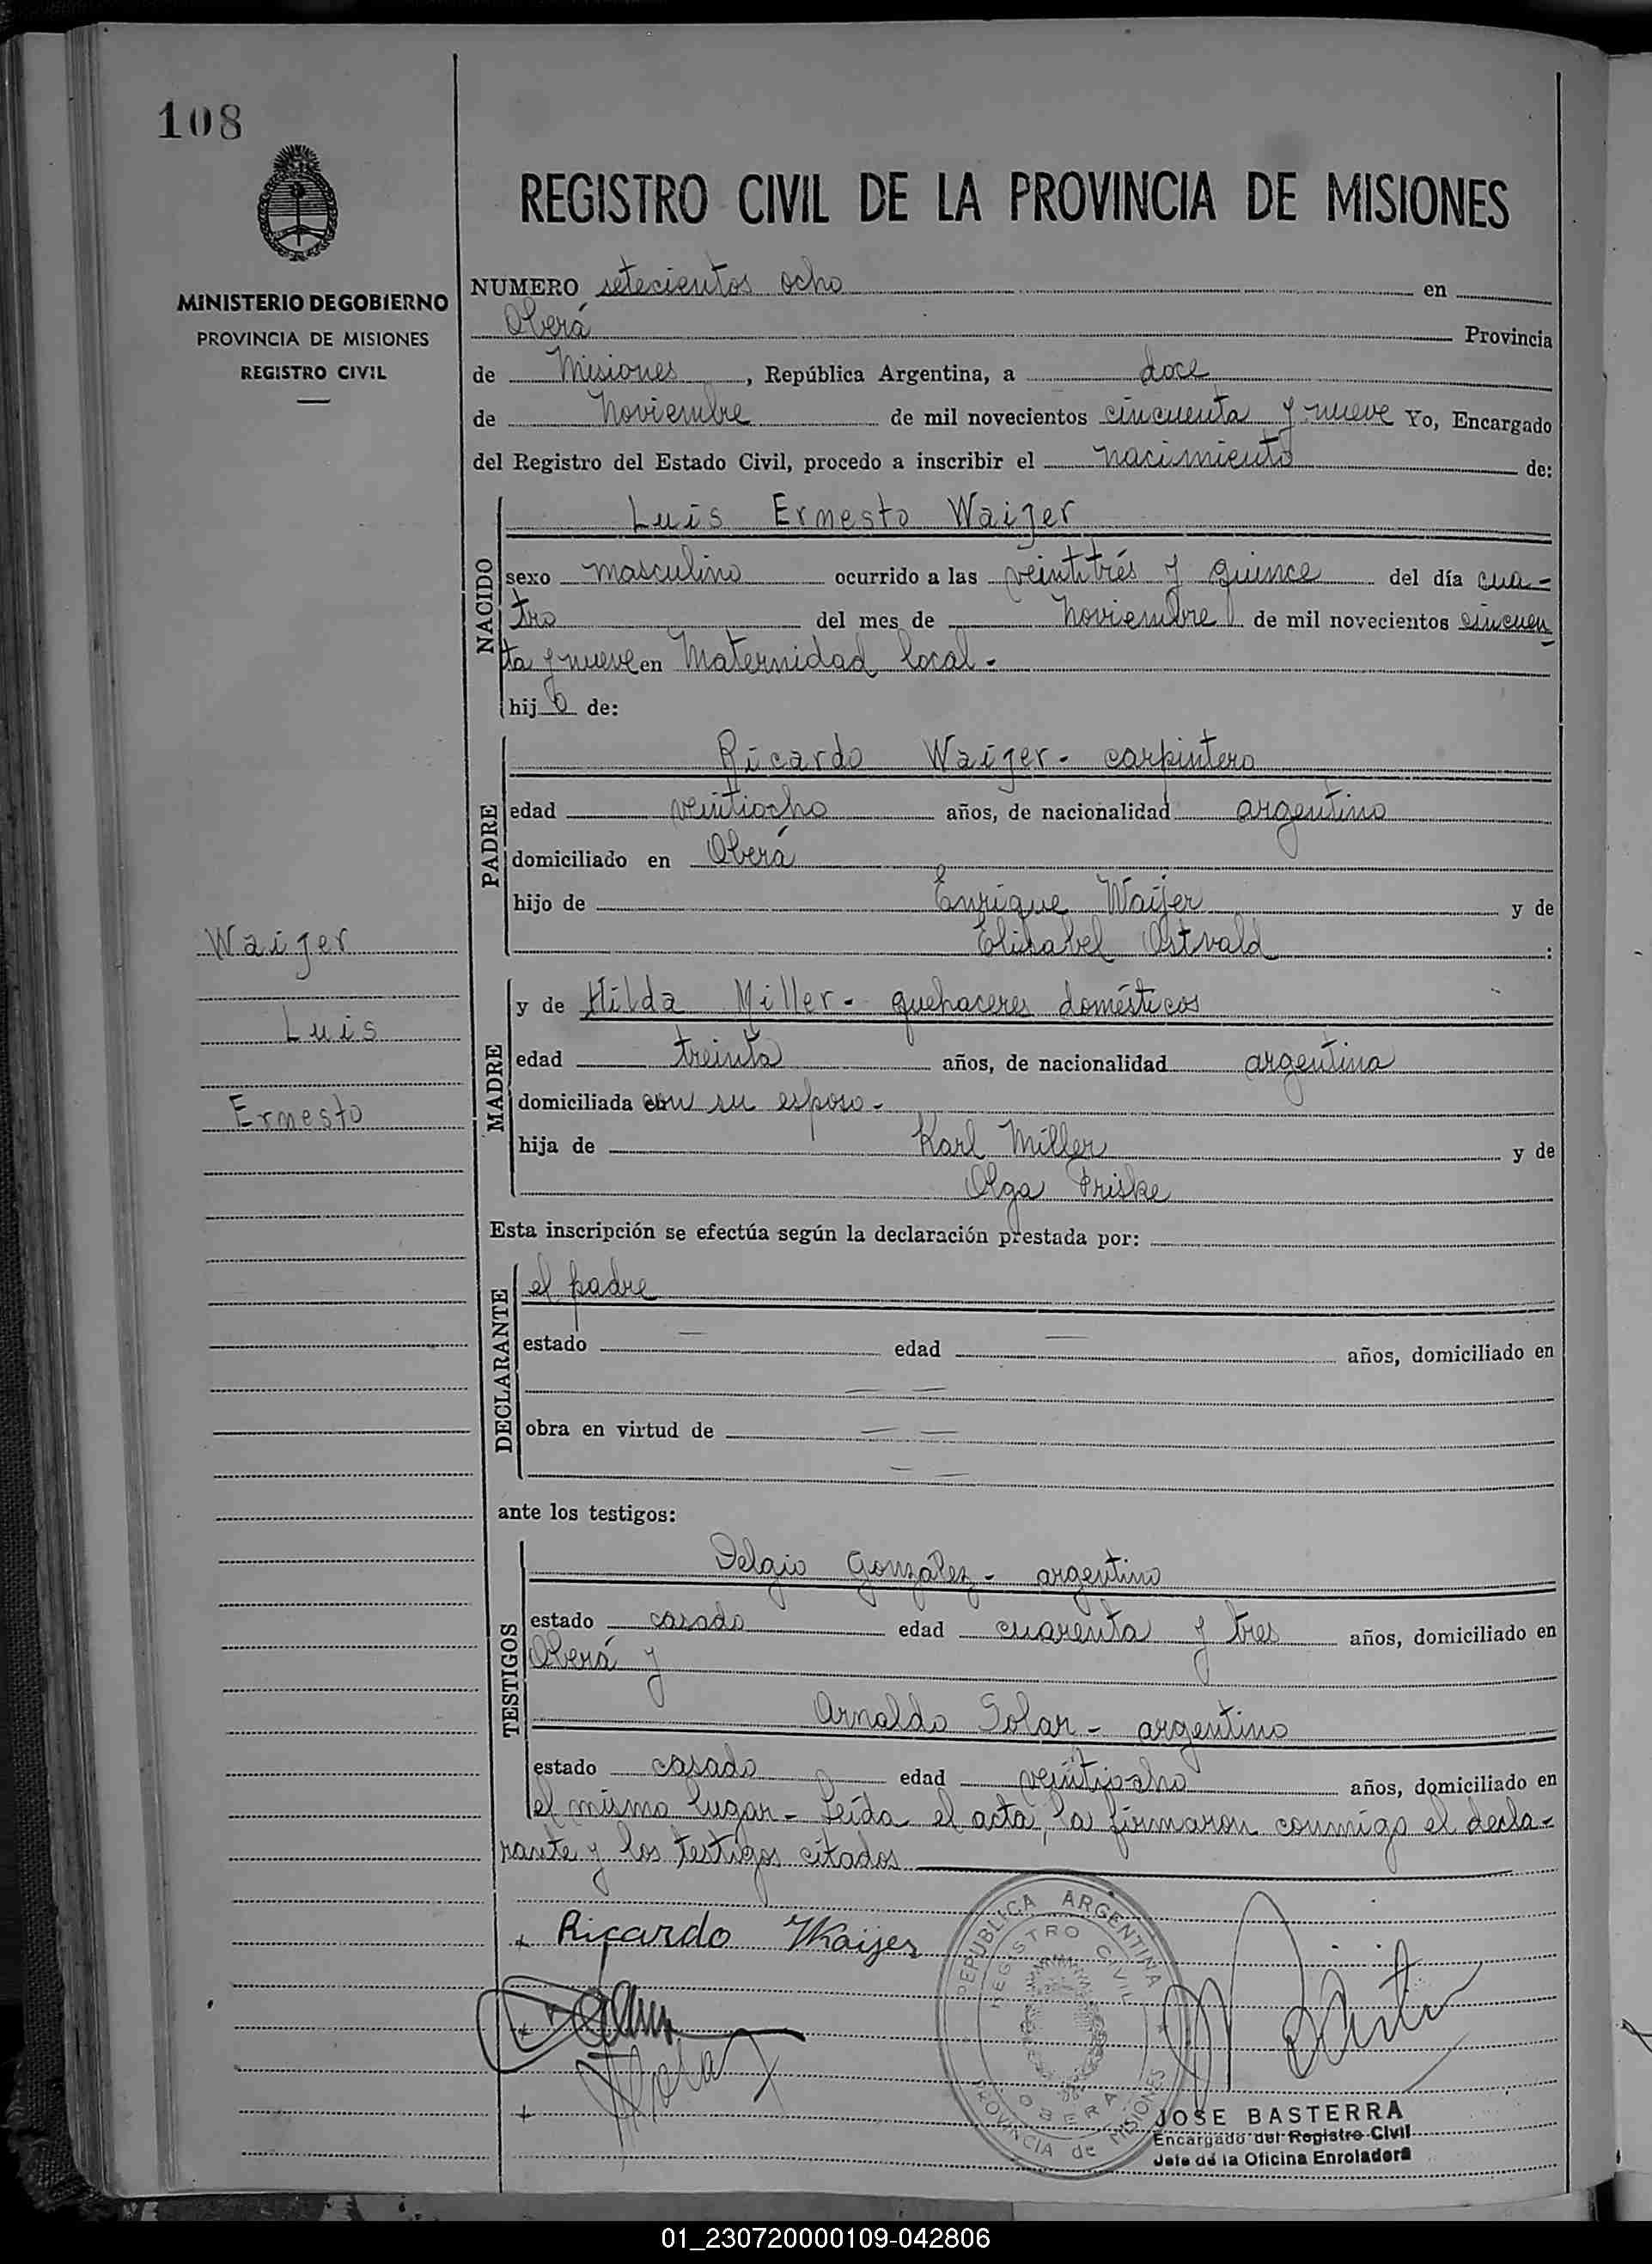 108
REGISTRO CIVIL DE LA PROVINCIA DE MISIONES
MINISTERIO DE GOBIERNO
PROVINCIA DE MISIONES
REGISTRO CIVIL
NUMERO setecientos ocho en
Oberá Provincia
de Misiones, República Argentina, a doce
de Noviembre de mil novecientos cincuenta y nueve Yo, Encargado
del Registro del Estado Civil, procedo a inscribir el nacimiento de:
NACIDO
Luis Ernesto Waijer
sexo masculino ocurrido a las veintitrés y quince del día cua-
tro del mes de Noviembre de mil novecientos cincuen
ta y nueve en Maternidad local.-
hijo de:
PADRE
Ricardo Waijer- carpintero
edad veintiocho años, de nacionalidad argentino
domiciliado en Oberá
hijo de Enrique Waijer y de
Elisabel Ostvald :
Waijer
Luis
Ernesto
MADRE
y de Hilda Miller- quehaceres domésticos
edad treinta años, de nacionalidad argentina
domiciliada con su esposo-
hija de Karl Miller y de
Olga Priske
Esta inscripción se efectúa según la declaración prestada por:
DECLARANTE
el padre
estado — edad — años, domiciliado en
— —
obra en virtud de — —
— —
ante los testigos:
TESTIGOS
Delgio González- argentino
estado casado edad cuarenta y tres años, domiciliado en
Oberá y
Arnaldo Solar- argentino
estado casado edad veintiocho años, domiciliado en
el mismo lugar- Leída el acta, la firmaron conmigo el decla-
rante y los testigos citados
Ricardo Waijer
REPUBLICA ARGENTINA
REGISTRO CIVIL
OBERA
PROVINCIA de MISIONES
JOSE BASTERRA
Encargado del Registro Civil
Jefe de la Oficina Enroladora
01_230720000109-042806